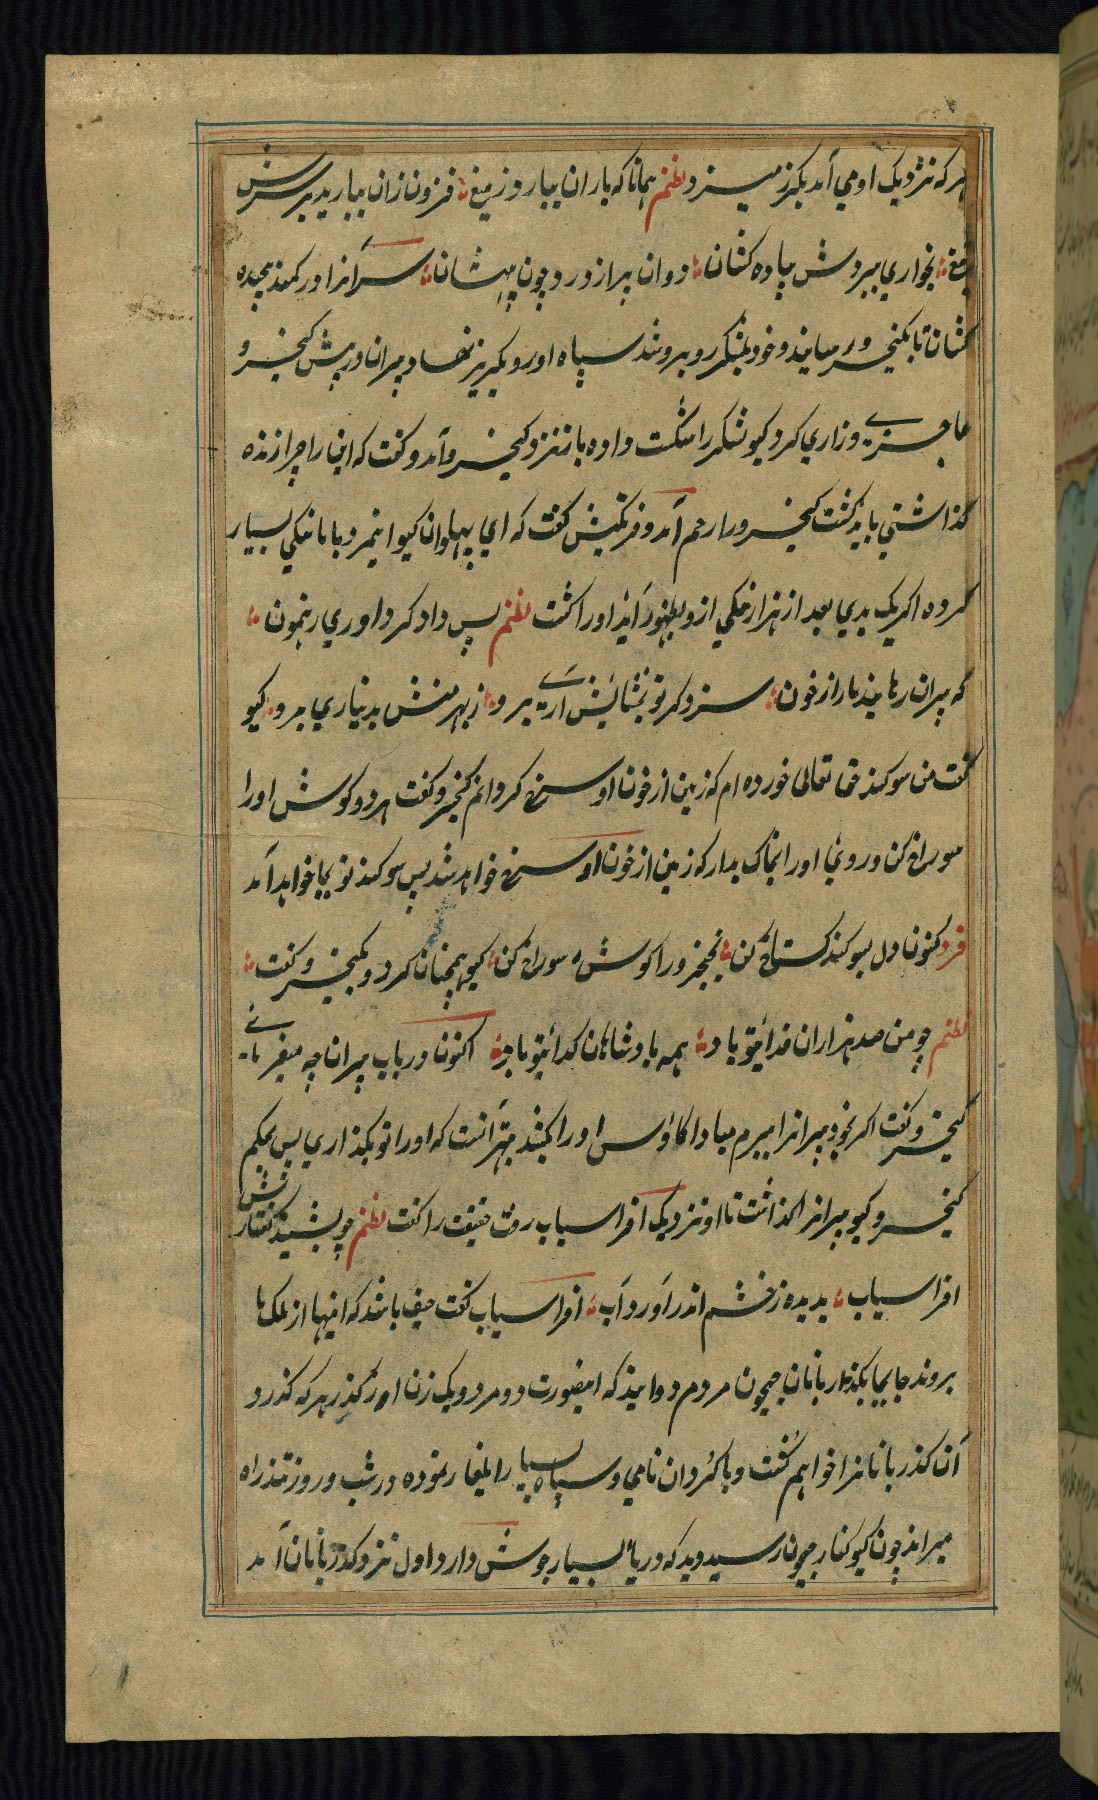 هر که نزدیک او می آمد بگرز میزد نظم همانا که باران ببارد ز میغ فزون زان ببارید بر سرش
تیغ بخواری ببردش پیاده کشان دوان پر از درد چون بیهشان سرانرا در کمند پیچیده
کشان تا بکیخسرو رسانید و خود بلشکر روبرو شد سپاه او رو بگریز نهاد پیران در پیش کیخسرو
عاجزی و زاری کرد کیو لشکر را شکست داده باز نزد کیخسرو آمد و کفت که این را چرا زنده
کذاشتی باید کشت کیخسرو را رحم آمد و فرنکیش کفت که ای پهلوان کیو اینمرد با ما نیکی بسیار
کرده اکر یک بدی بعد از هزار نیکی ازو بظهور آید او را کشت نظم پس دادکر داوری رهنمون
که پیران رهانید ما را ز خون سزد کر تو بخشایش آری برو ز بهر منش بد نیاری برو کیو
کفت من سوکند حق تعالی خورده ام که زمین از خون او سرخ کردانم کیخسرو کفت هر دو کوش او را
سوراخ کن و رو نما او را بخاک بدار که زمین از خون او سرخ خواهد شد پس سوکند تو بجا خواهد آمد
فرد کنون دل بسوکند کستاخ کن بخنجر ورا کوش سوراخ کن کیو همچنان کرد و بکیخسرو کفت
نظم چو من صد هزاران فدای تو باد همه پادشاهان کدای تو باد اکنون در باب پیران چه میفرمائی
کیخسرو کفت اکر بخود پیرانرا میبرم مبادا کاوس او را بکشد بهتر آنست که او را تو بکذاری پس بحکم
کیخسرو کیو پیرانرا کذاشت تا او نزدیک افراسیاب رفت حقیقت را کفت نظم چو بشنید کفتارش
افراسیاب بدیده ز خشم اندر آورد آب افراسیاب کفت حیف باشد که اینها از ملک ما
بروند جابجا بکذاربانان جیحون مردم دوانید که اینصورت دو مرد و یک زن از کذر هر که کذرد
آن کذربانانرا خواهم کشت و با کردان نامی و سپاه بسیار ایلغار نموده در شب و روز تند راه
میراند چون کیو کنار جیحون رسید دید که دریا بسیار جوش دارد اول نزد کذربانان آمد